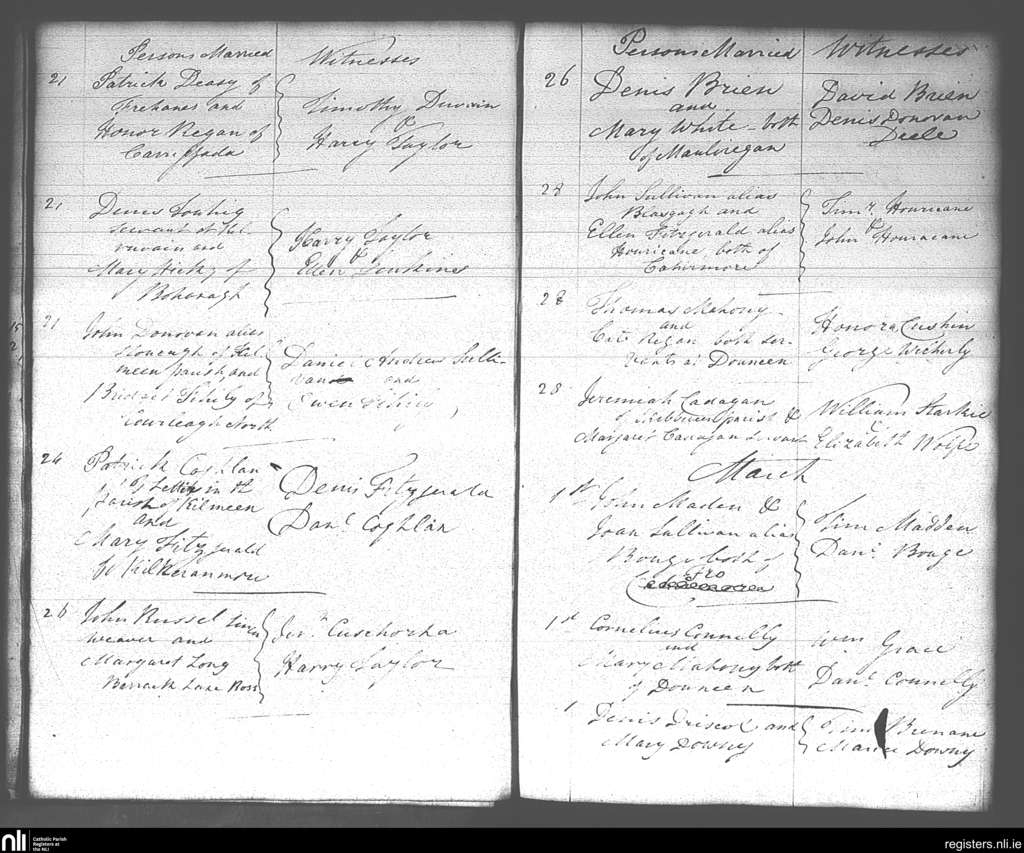 Persons Married Witnesses
21 Patrick Deasy of
Frehanes and Timothy Donovan
Honor Regan of &
Carrigfada Harry Taylor
21 Denis
servant at Kil
and Harry Taylor
Mary Hicky of &
Bohonagh Ellen Jenkins
21 John Donovan alias
of Kil
meen parish and Daniel Andrew Sulli-
Bridget of van and
Courleagh North Owen
24 Patrick Coghlan
of in the Denis Fitzgerald
parish of Kilmeen Danl. Coghlan
and
Mary Fitzgerald
of Kilkeranmore
26 John Russel linen
weaver and
Margaret Long Harry Taylor
Barrack Lane Ross
Persons Married Witnesses
26 Denis Brien David Brien
and Denis Donovan
Mary White - both Deele
of Maulvregan
28 John Sullivan alias
Blasgagh and Timy. Houricane
Ellen Fitzgerald alias &
Houricane, both of John Houracane
Cahirmore
28 Thomas Mahony
and Honora Cushin
Cate Regan both ser- George Wicherly
vants at Douneen
28 Jeremiah Cadagan
of parish & William Starkie
Margaret Cadagan Servant Elizabeth Wolfe
March
1st John Maden &
Joan Sullivan alias Tim Madden
Bouge both of Danl. Bouge
Fro
1st Cornelius Connelly
and Wm. Grace
Mary Mahony both
of Douneen Danl. Connelly
1 Denis Driscol and Tim Brenane
Mary Downy Downy
nli
Catholic Parish
Registers at
the NLI
registers.nli.ie